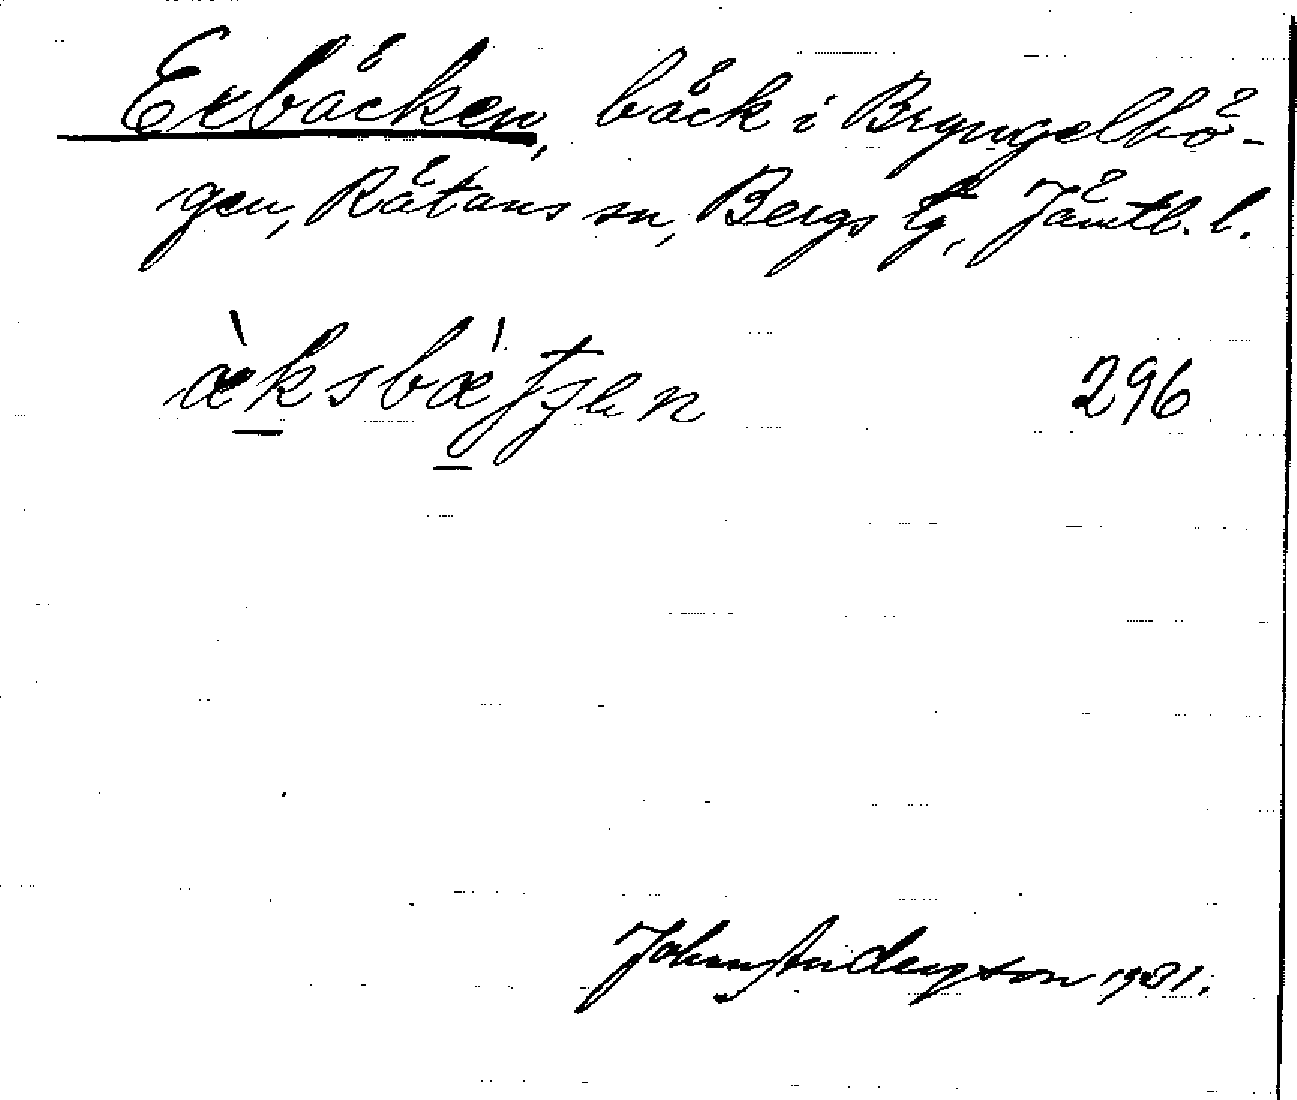 Exbäcken, bäck i Bryngelhö-
gen, Rätans sn, Bergs tg, Jämtl. l.
æ̀ksbæ̀
296
John Anderson 1931.